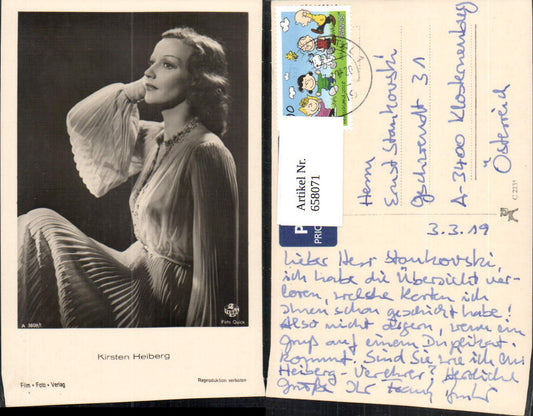 A 3808/1
Foto Quick
Kirsten Heiberg
Film - Foto - Verlag
Reproduktion verboten
Artikel Nr.
658071
PRIO
Herrn
Ernst Stankovski
Gschwendt 31
A-3400 Klosterneuburg
Österreich
3.3.19
Lieber Herr Stankovski,
ich habe die Übersicht ver-
loren, welche Karten ich
Ihnen schon geschickt habe!
Also nicht ärgern, wenn ein
Gruß auf einem Duplikat
kommt. Sind Sie wie ich
Heiberg-Verehrer? Herzliche
Grüße Ihr